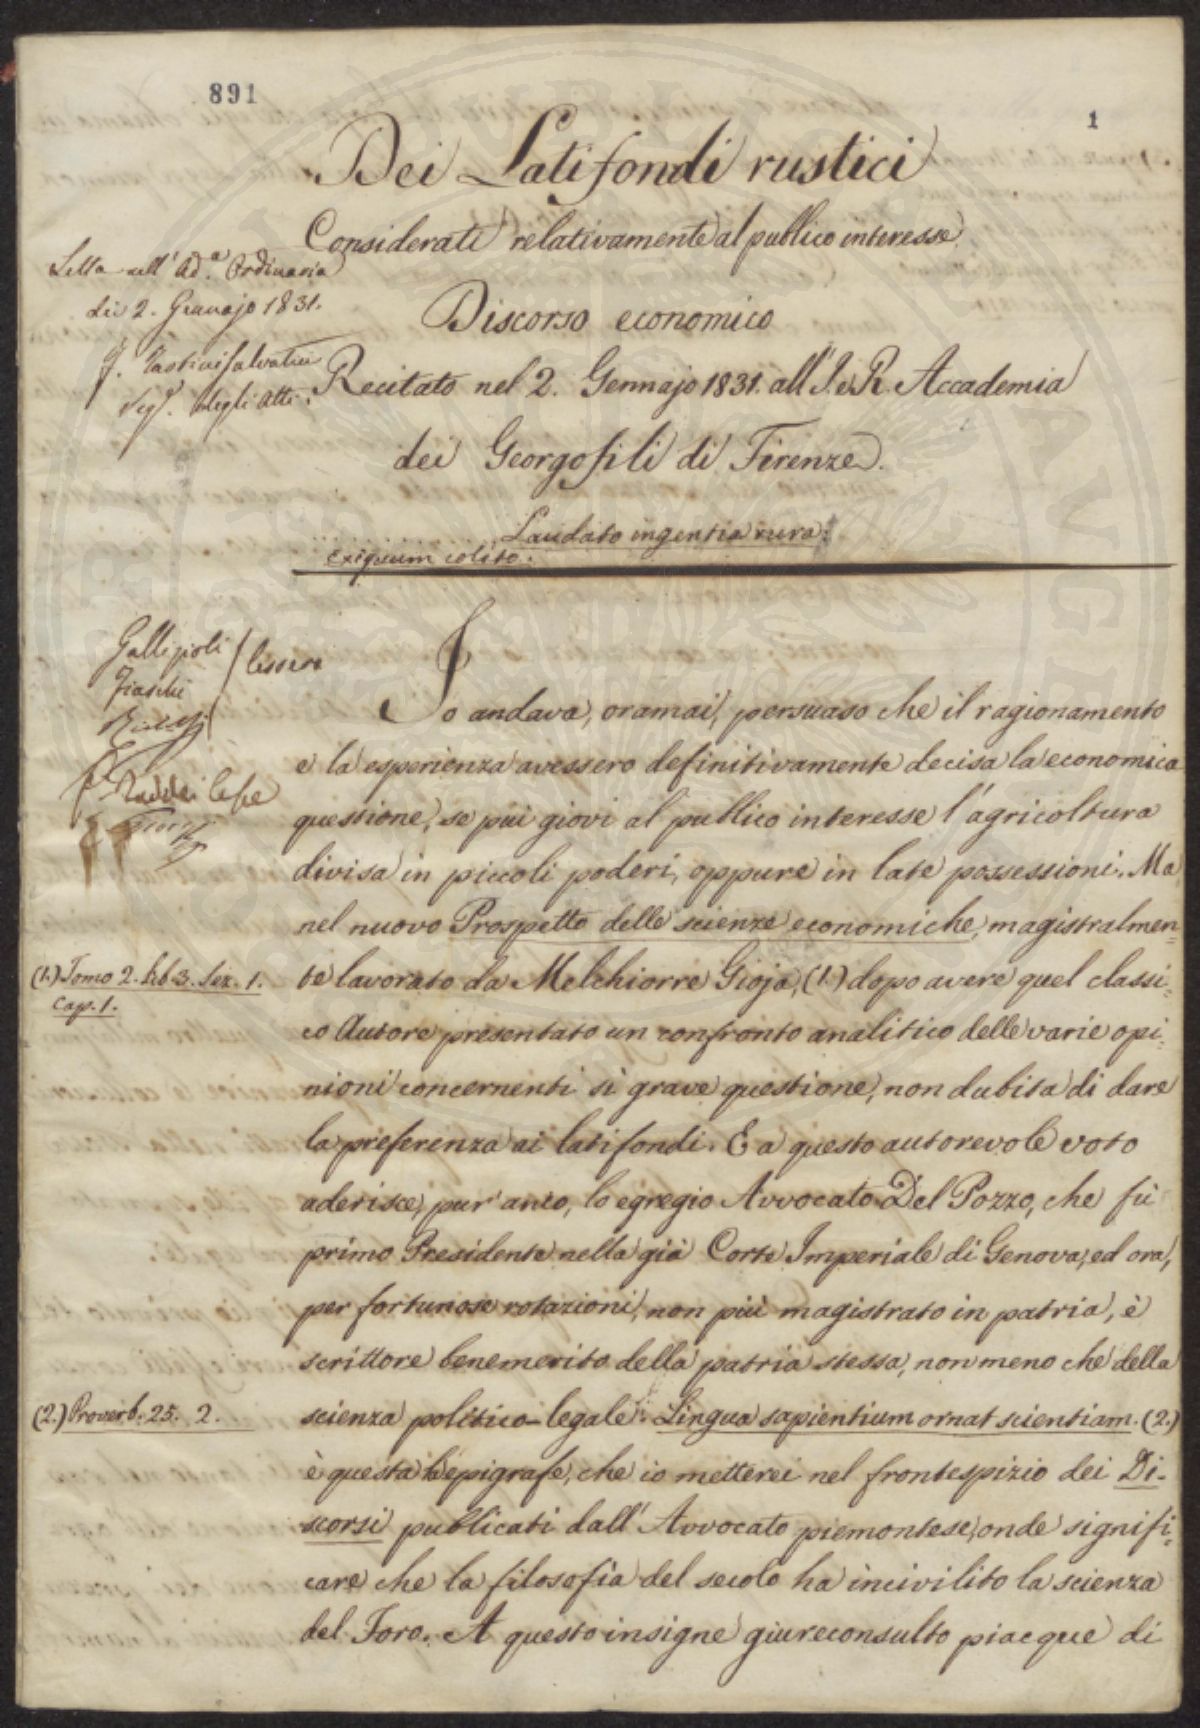 891
1
Dei Latifondi rustici
Considerati relativamente al publico interesse
Letta nell' Ad.a Ordinaria
dei 2. Gennajo 1831.
Discorso economico
F. Tartini Salvatici
Seg.o degli Atti.
Recitato nel 2. Gennajo 1831. all' I. e R. Accademia
dei Georgofili di Firenze.
Laudato ingentia rura:
exiguum colito.
Gallizioli
Ridolfi
lessero
Raddi lesse
Io andava, oramai, persuaso che il ragionamento
e la esperienza avessero definitivamente decisa la economica
questione, se più giovi al publico interesse l'agricoltura
divisa in piccoli poderi, oppure in late possessioni. Ma
nel nuovo Prospetto delle scienze economiche, magistralmen-
(1.) Tomo 2. Lib 3. Sez. 1.
Cap. 1.
te lavorato da Melchiorre Gioja, (1.) dopo avere quel classi-
co Autore presentato un confronto analitico delle varie opi-
nioni concernenti sì grave questione, non dubita di dare
la preferenza ai latifondi. E a questo autorevole voto
aderisce, pur' anco, lo egregio Avvocato Del Pozzo, che fù
primo Presidente nella già Corte Imperiale di Genova, ed ora,
per fortunose rotazioni, non più magistrato in patria, è
scrittore benemerito della patria stessa, non meno che della
(2.) Proverb. 25. 2.
scienza politico-legale: Lingua sapientium ornat scientiam. (2.)
è questa l'epigrafe, che io metterei nel frontespizio dei Di-
scorsi publicati dall' Avvocato piemontese, onde signifi-
care che la filosofia del secolo ha incivilito la scienza
del Foro. A questo insigne giureconsulto piacque di